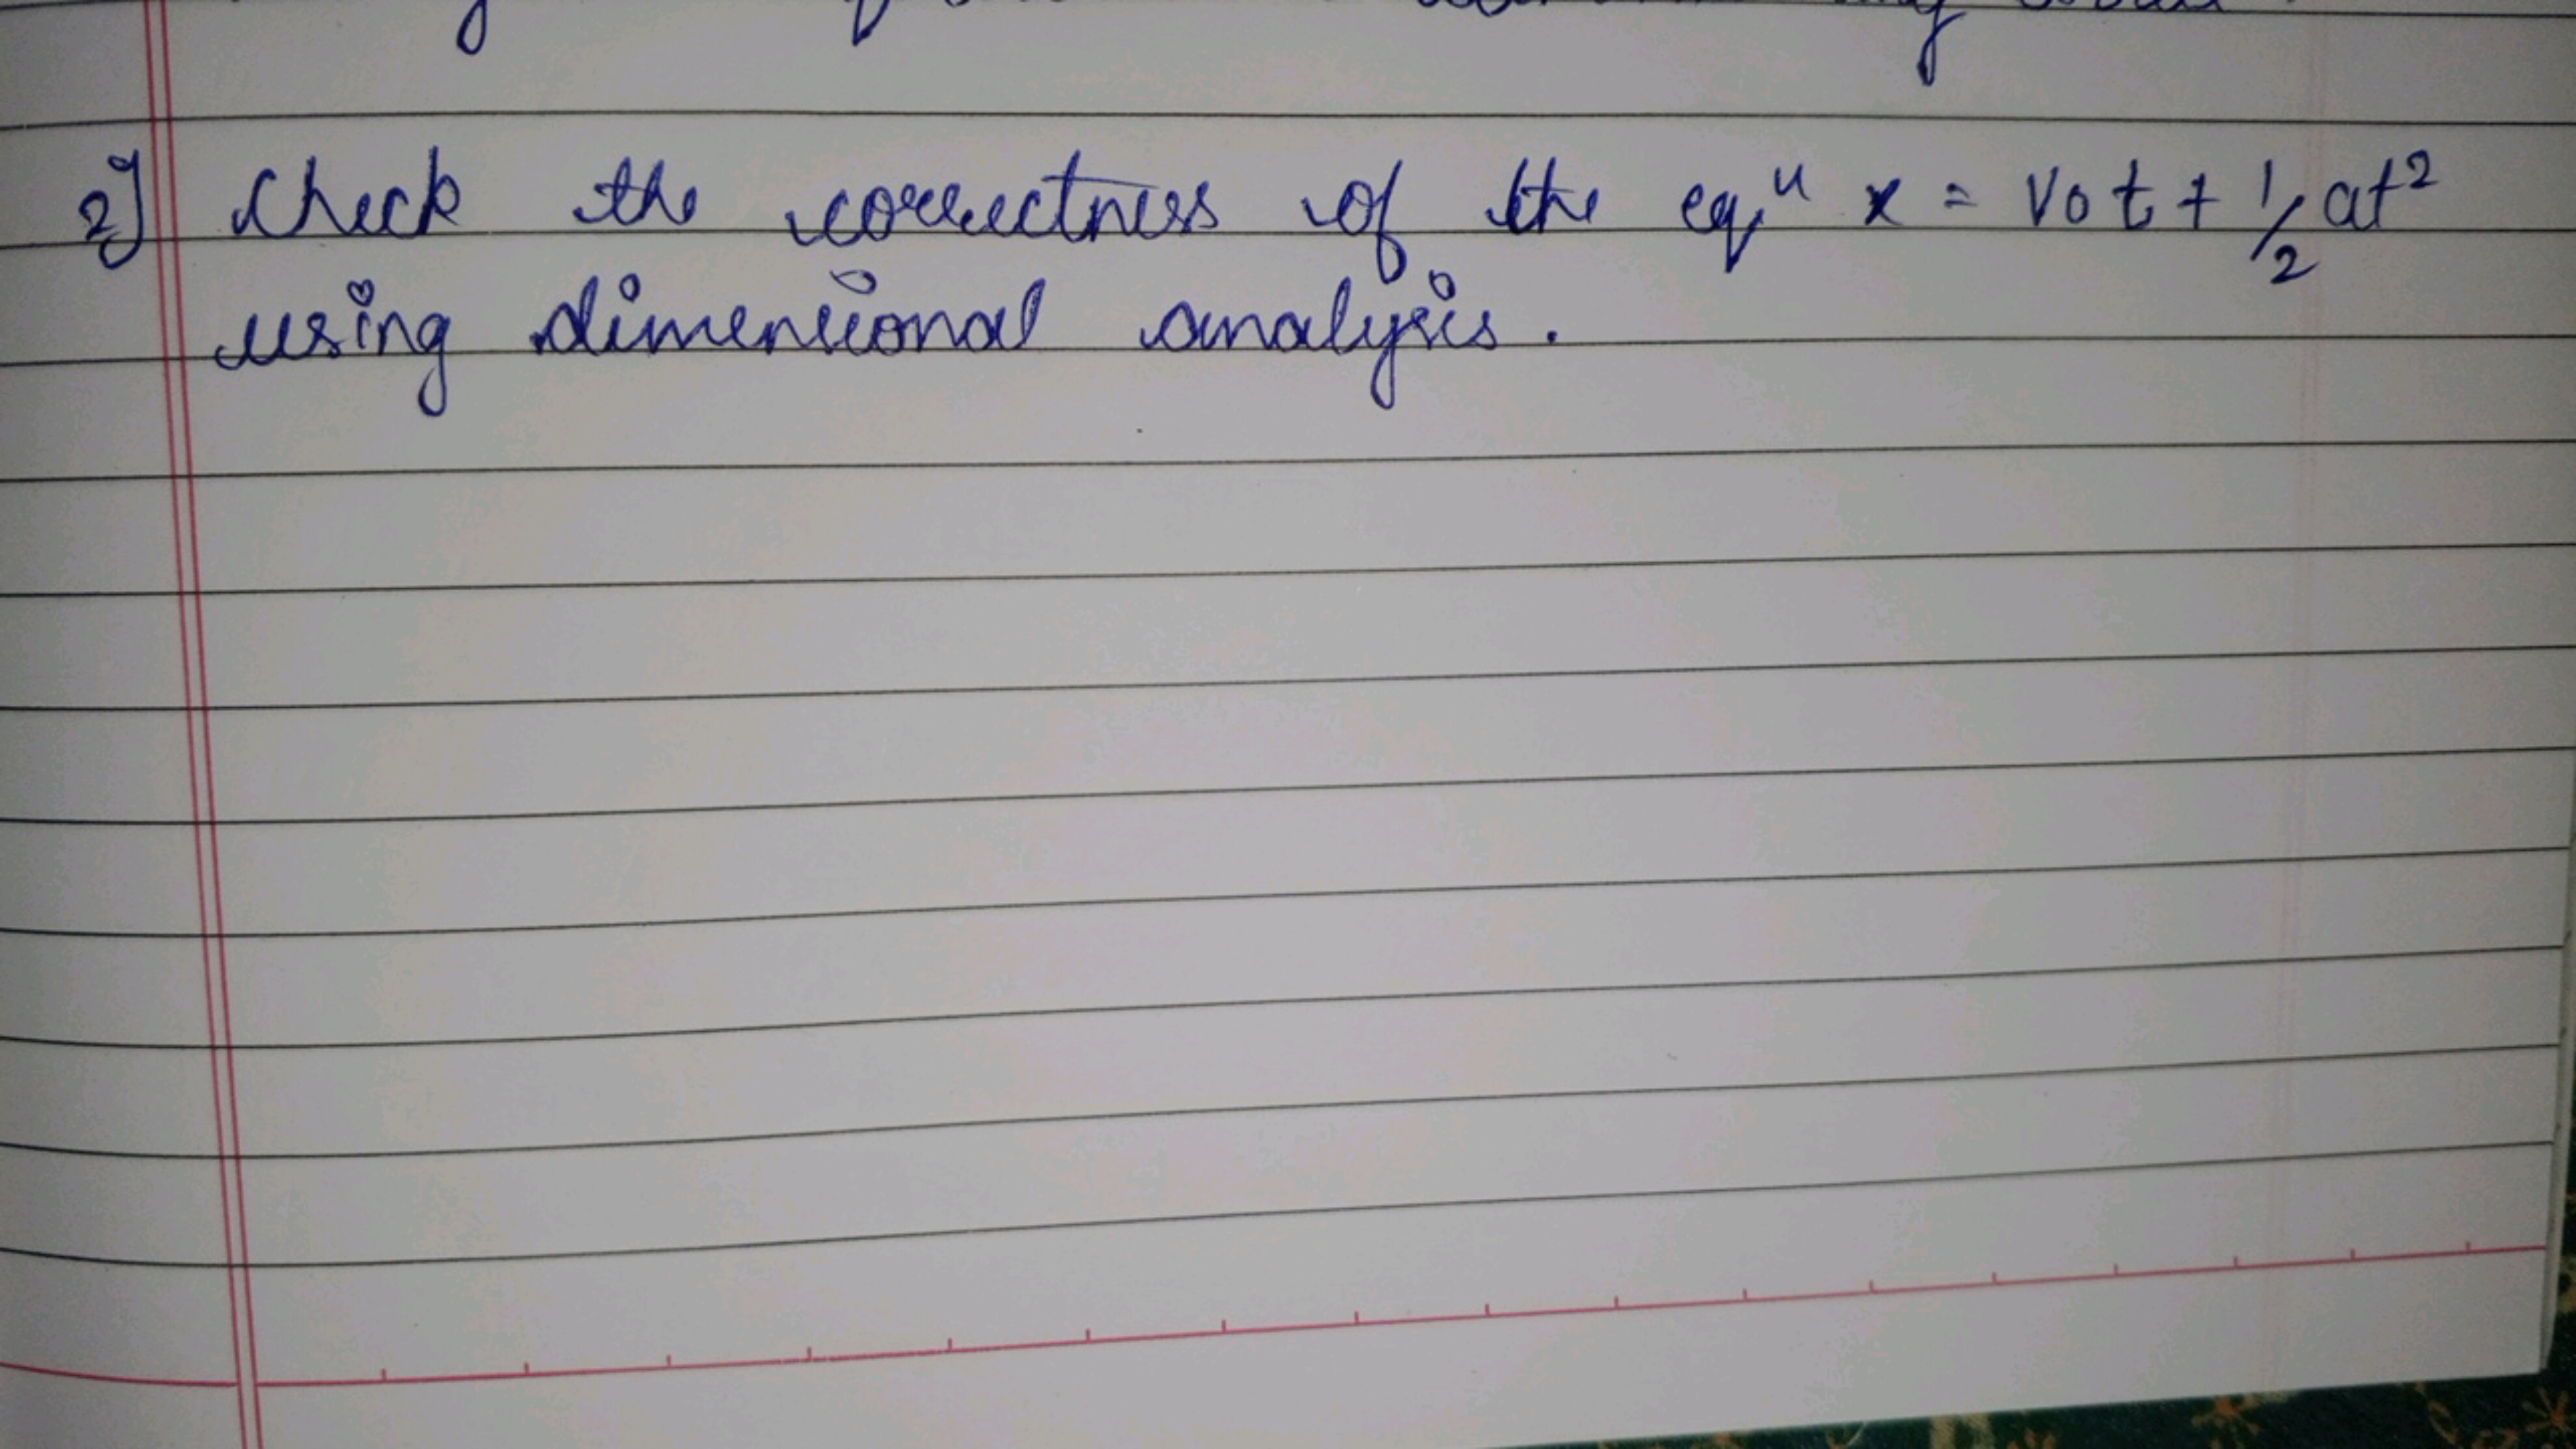 2] Check the correctness of the eqⁿ x = v₀t + 1/2 at²
using dimentional analysis.